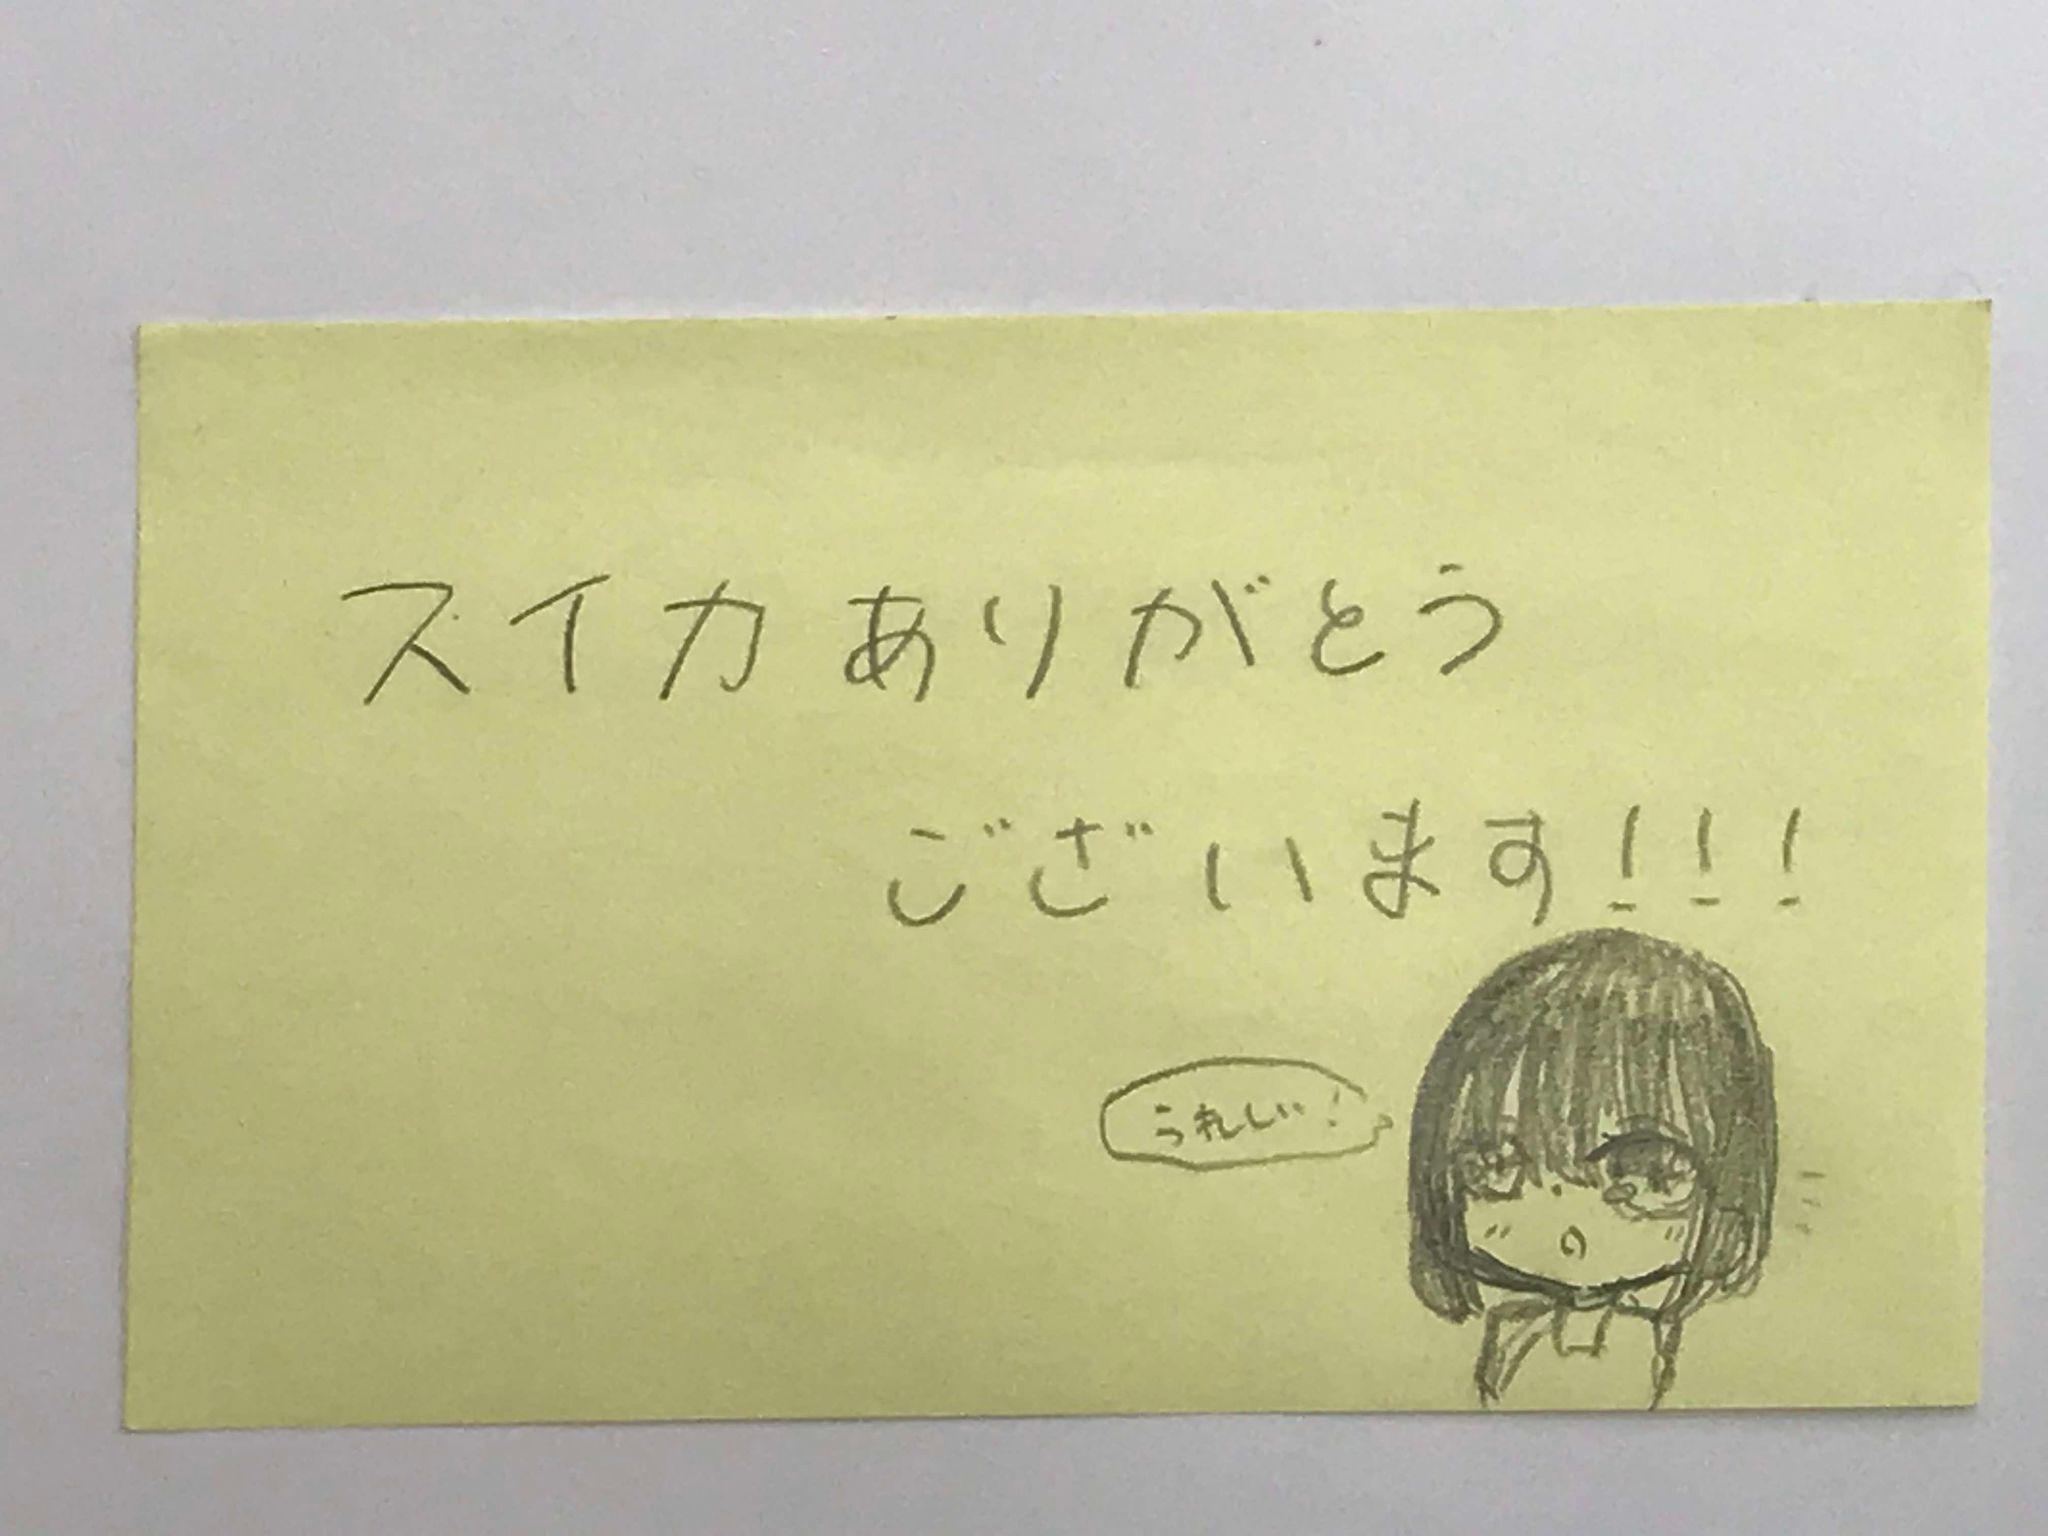 スイカありがとう
ございます!!!
うれしい!